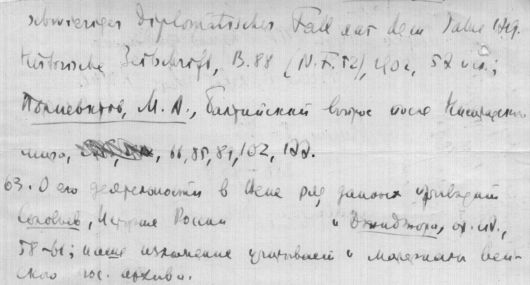 schwieriger diplomatischer Fall aus dem Jahre 1719.
Historische Zeitschrift, B. 88 (N.F. 52), 1902, 52 и сл.;
Полиевктов, М. А., Балтийский вопрос после Ништадского
мира, 66, 85, 89, 102, 122.
63. О его деятельности в Вене ряд данных приводит
Соловьев, История России и Джиджора, ор. cit.,
58-61; наше изложение учитывает и материалы вен-
ского гос. архива.